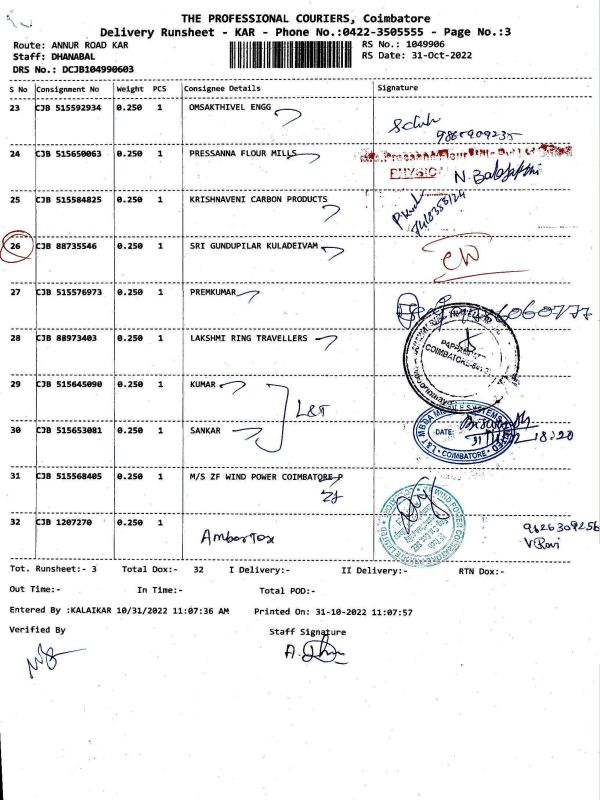 THE PROFESSIONAL COURIERS, Coimbatore
Delivery Runsheet - KAR - Phone No.:0422-3505555 - Page No.:3
Route: ANNUR ROAD KAR RS No.: 1049906
Staff: DHANABAL RS Date: 31-Oct-2022
DRS No.: DCJB104990603
S No Consignment No Weight PCS Consignee Details Signature
23 CJB 515592934 0.250 1 OMSAKTHIVEL ENGG
24 CJB 515650063 0.250 1 PRESSANNA FLOUR MILLS
25 CJB 515584825 0.250 1 KRISHNAVENI CARBON PRODUCTS
26 CJB 88735546 0.250 1 SRI GUNDUPILAR KULADEIVAM
27 CJB 515576973 0.250 1 PREMKUMAR
28 CJB 88973403 0.250 1 LAKSHMI RING TRAVELLERS
29 CJB 515645090 0.250 1 KUMAR
L&T
30 CJB 515653081 0.250 1 SANKAR
DATE:
COIMBATORE
18:20
31 CJB 515568405 0.250 1 M/S ZF WIND POWER COIMBATORE P
ZF
32 CJB 1207270 0.250 1
Ambertex
9626309256
V Ravi
Tot. Runsheet:- 3 Total Dox:- 32 I Delivery:- II Delivery:- RTN Dox:-
Out Time:- In Time:- Total POD:-
Entered By :KALAIKAR 10/31/2022 11:07:36 AM Printed On: 31-10-2022 11:07:57
Verified By Staff Signature